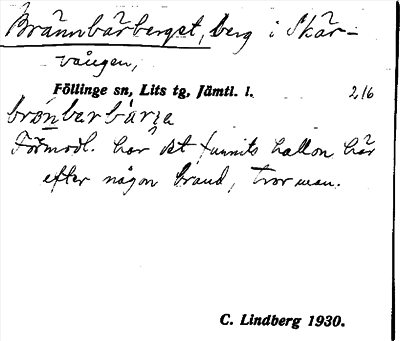 Brännbärberget, berg i Skär-
vången,
Föllinge sn, Lits tg, Jämtl. l. 216
brönbarbärjæ
Förmodl. har det funnits hallon här
efter någon brand, tror man.
C. Lindberg 1930.